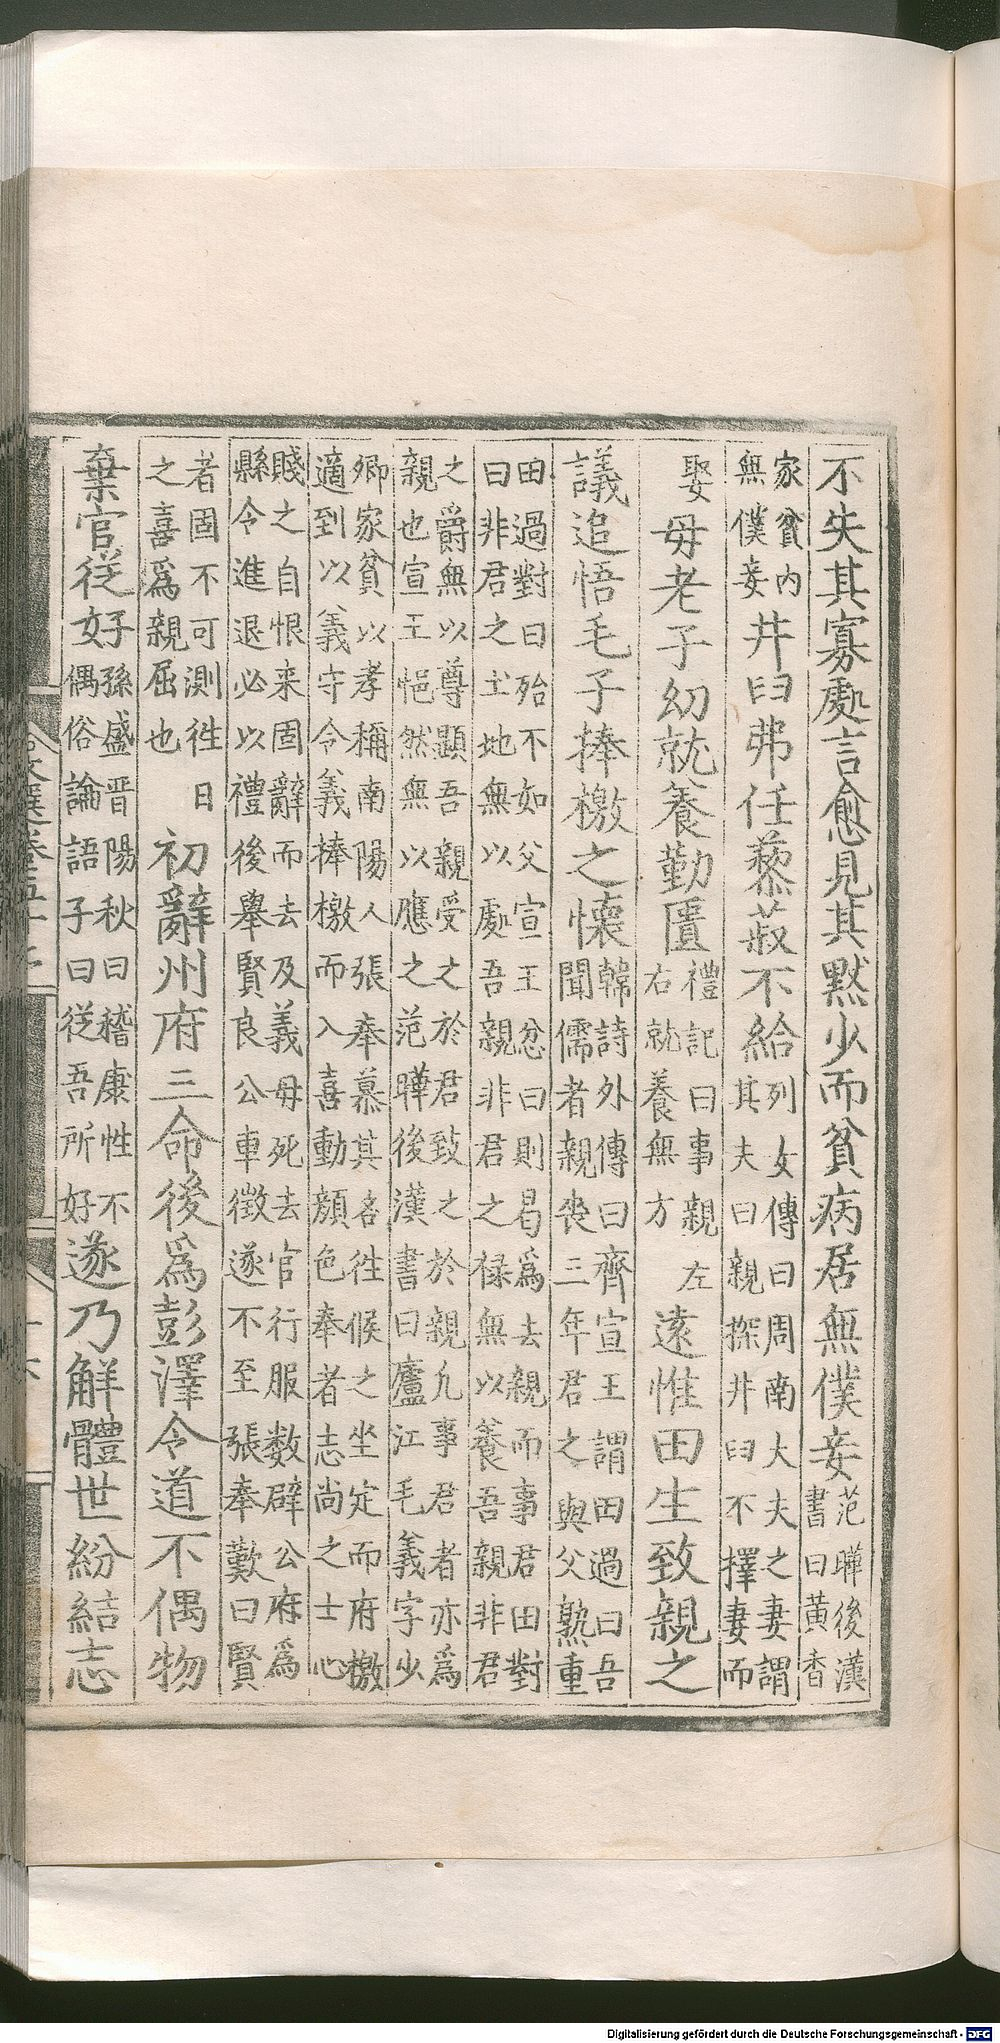 不失其寡處言愈見其默少而貧病居無僕妾范曄後漢書曰黃香
家貧內無僕妾井臼弗任藜菽不給列女傳曰周南大夫之妻謂其夫曰親探井臼不擇妻而
娶母老子幼就養勤匱禮記曰事親左右就養無方遠惟田生致親之
議追悟毛子捧檄之懷韓詩外傳曰齊宣王謂田過曰吾聞儒者親喪三年君之與父孰重
田過對曰殆不如父宣王忿曰則曷爲去親而事君田對曰非君之土地無以處吾親非君之祿無以養吾親非君
之爵無以尊顯吾親受之於君致之於親凡事君者亦爲親也宣王悒然無以應之范曄後漢書曰廬江毛義字少
卿家貧以孝稱南陽人張奉慕其名往候之坐定而府檄適到以義守令義捧檄而入喜動顏色奉者志尚之士心
賤之自恨来固辭而去及義母死去官行服数辟公府爲縣令進退必以禮後舉賢良公車徵遂不至張奉歎曰賢
者固不可測往日之喜爲親屈也初辭州府三命後爲彭澤令道不偶物
棄官從好孫盛晉陽秋曰嵇康性不偶俗論語子曰從吾所好遂乃解體世紛結志
Digitalisierung gefördert durch die Deutsche Forschungsgemeinschaft - DFG